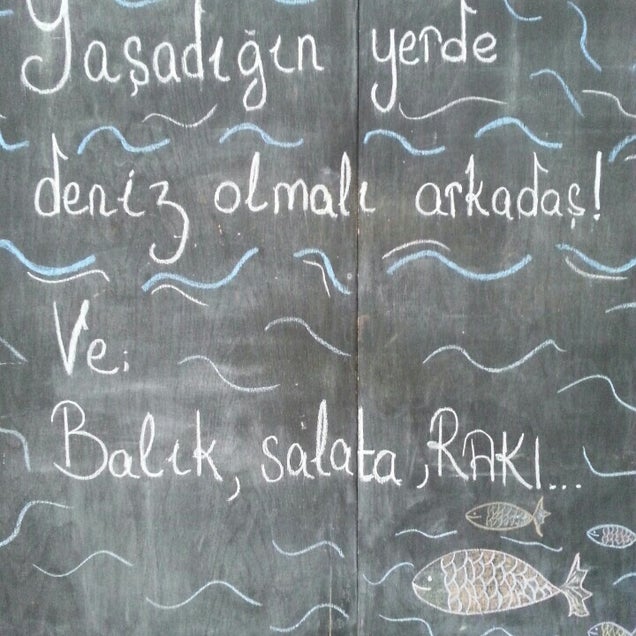 Yaşadığın yerde
deniz olmalı arkadaş!
Ve.
Balık, salata, RAKI...